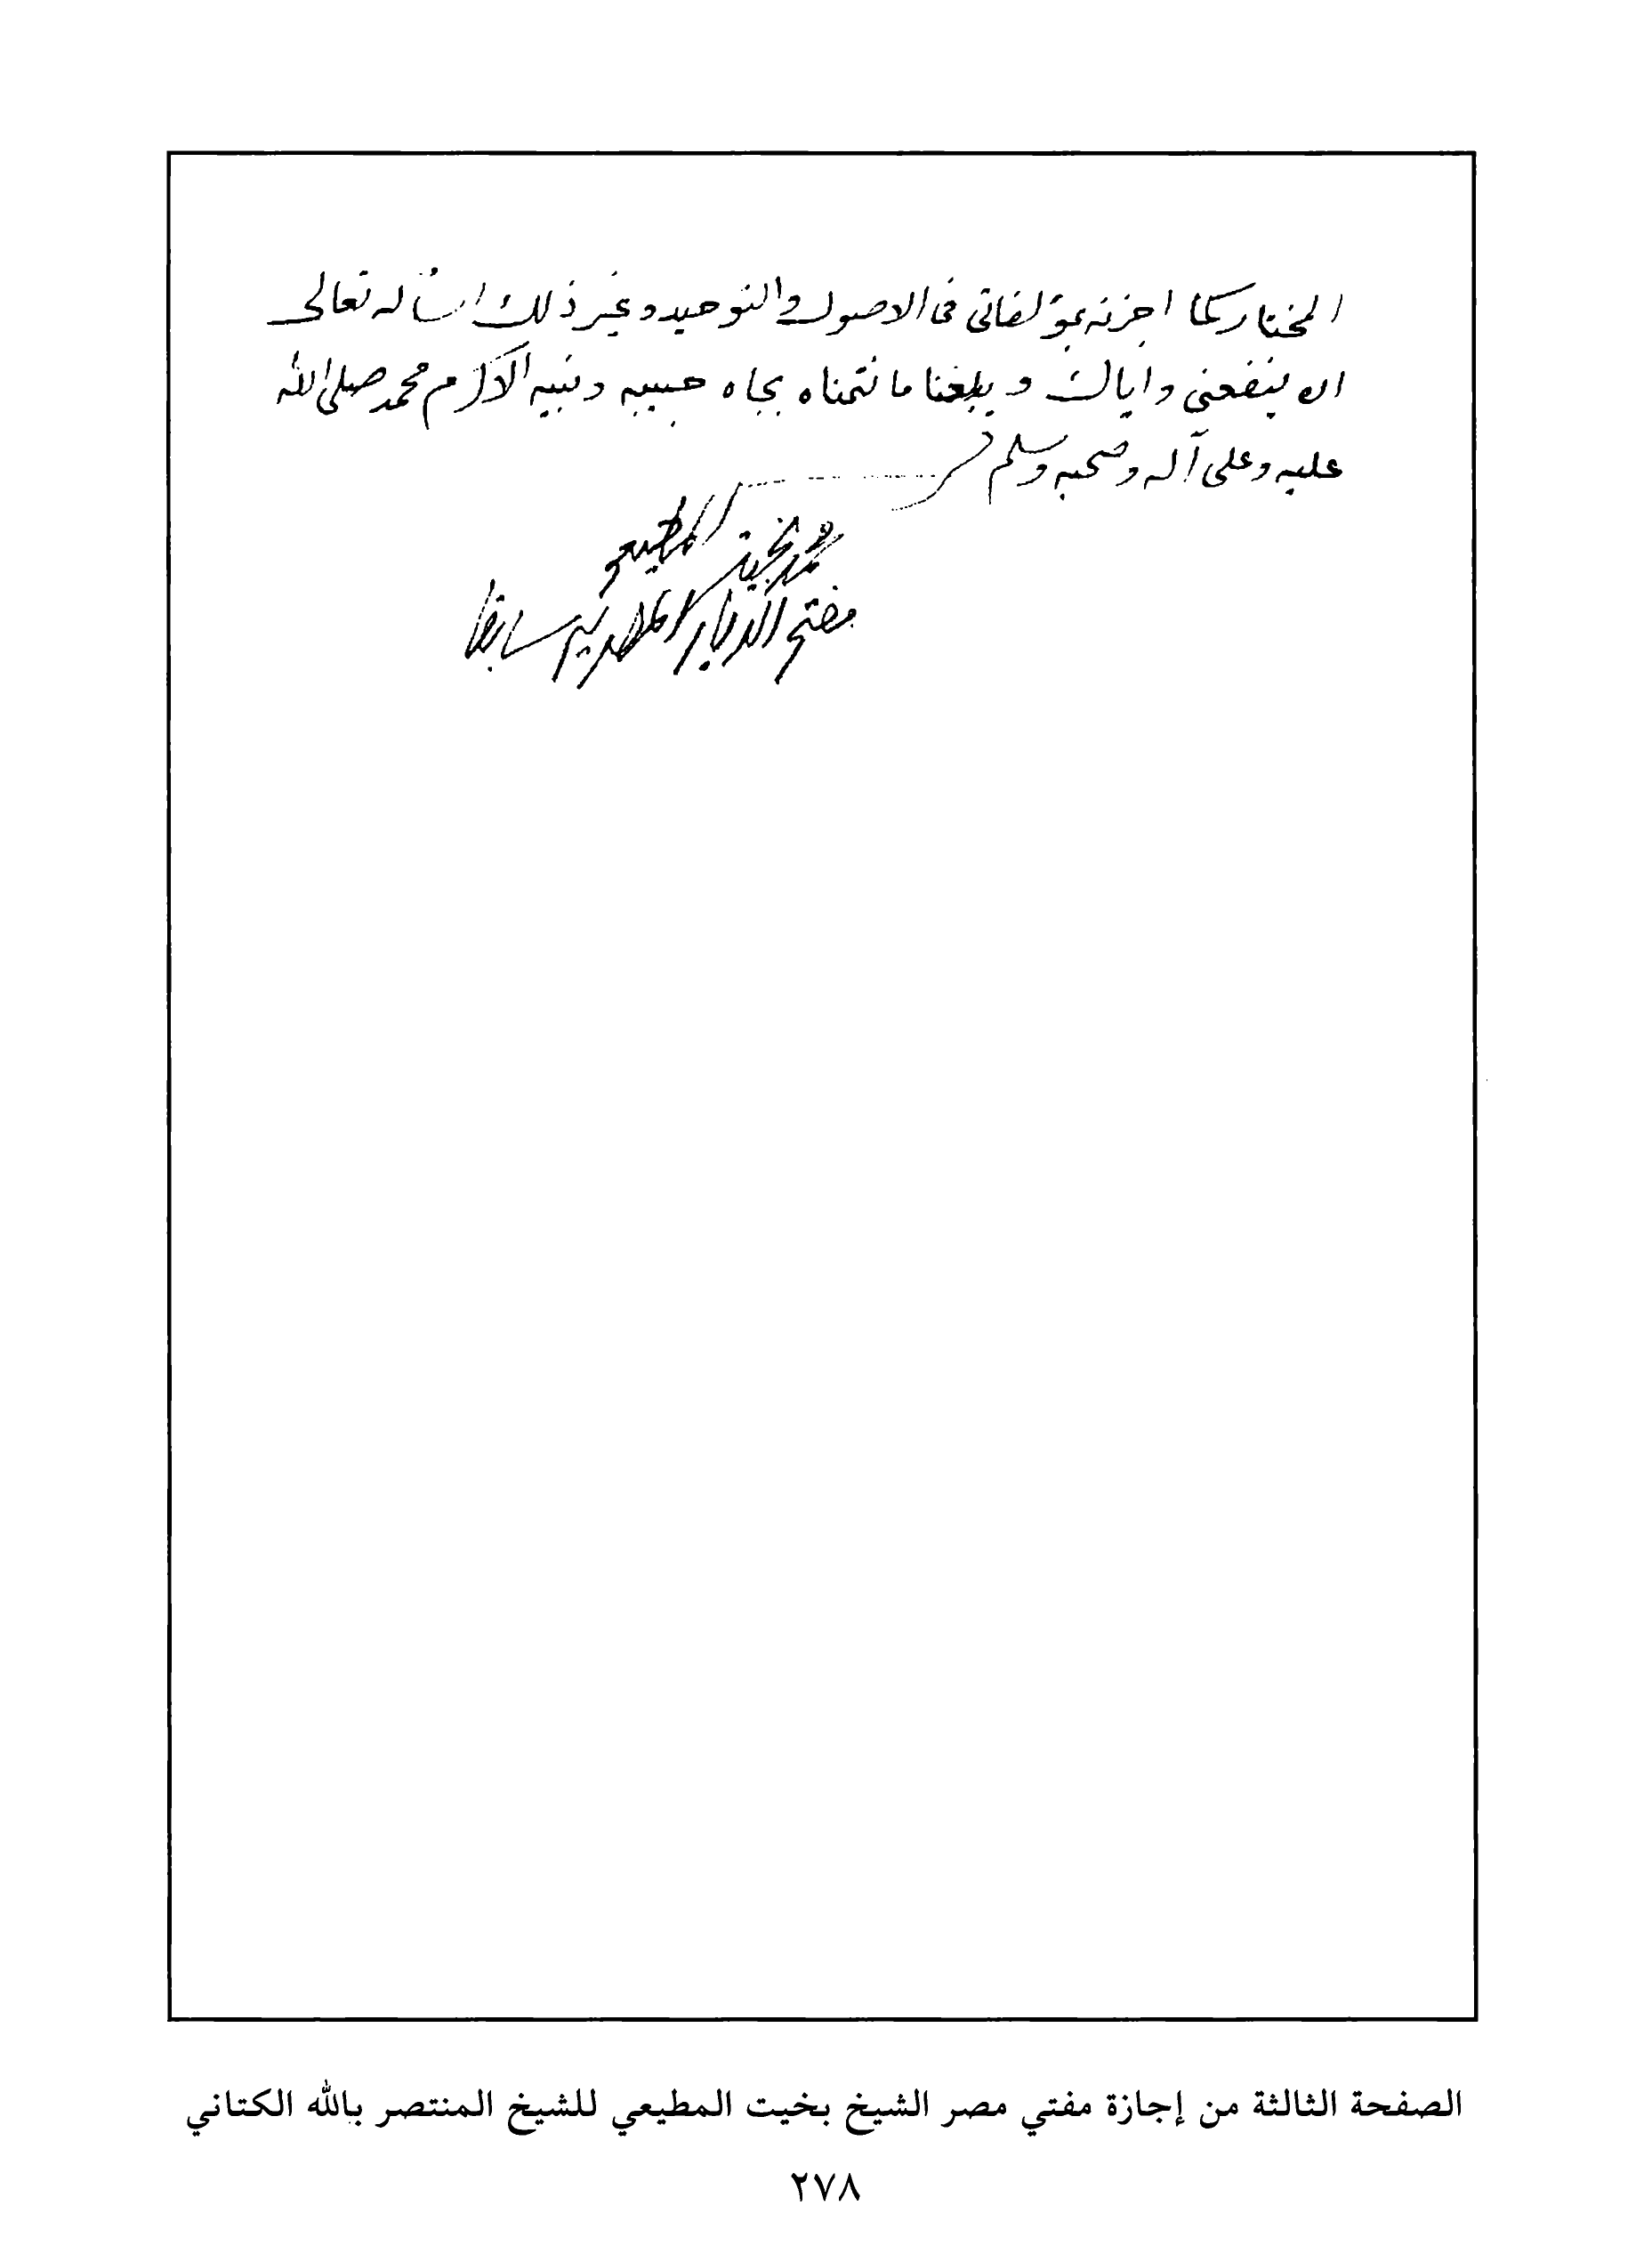 المختار كما اجزته بمؤلفاتى فى الاصول والتوحيد وغير ذلك اسأله تعالى
ان ينفعنى واياك و يبلغنا ما نتمناه بجاه حبيبه ونبيه الاكرم محمد صلى الله
عليه وعلى آله وصحبه وسلم
محمد بخيت المطيعى
مفتى الديار المصريه سابقا
الصفحة الثالثة من إجازة مفتي مصر الشيخ بخيت المطيعي للشيخ المنتصر بالله الكتاني
٢٧٨